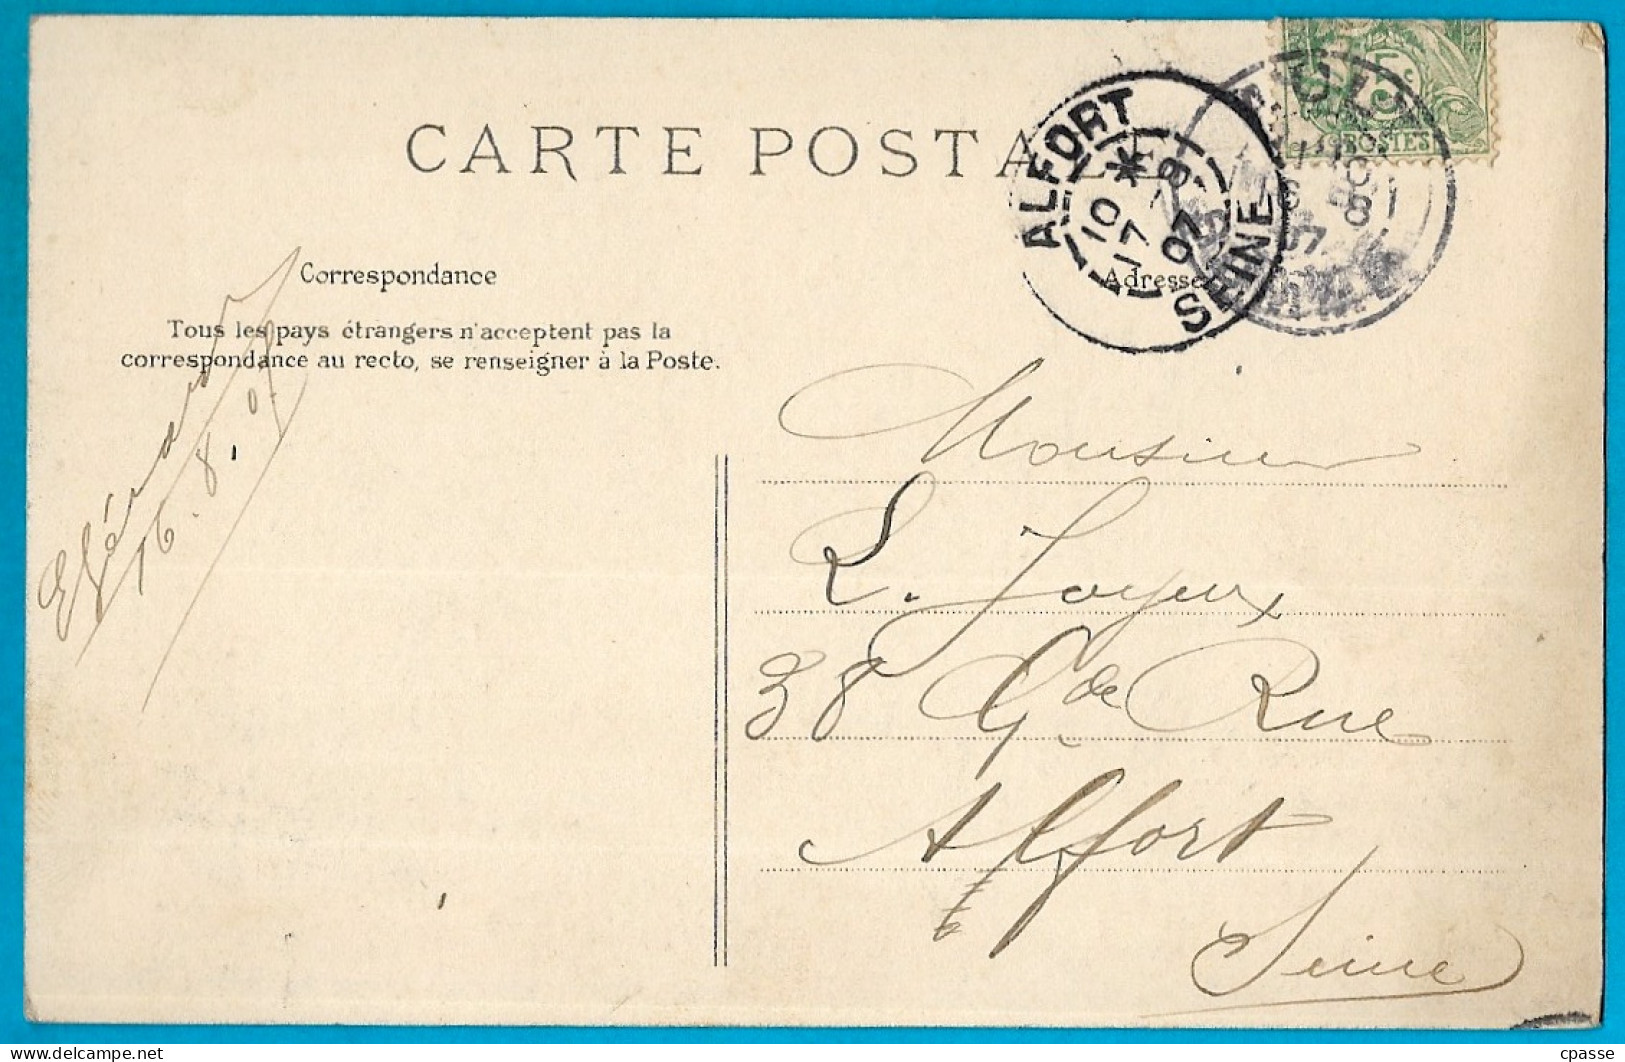 CARTE POSTALE
Correspondance
Adresse
Tous les pays étrangers n'acceptent pas la
correspondance au recto, se renseigner à la Poste.
16.8.07
ALFORT
10 *
17 - 8
07
SEINE
5c
POSTES
Monsieur
L. Joyeux
38 Gde Rue
Alfort
Seine
cpasse